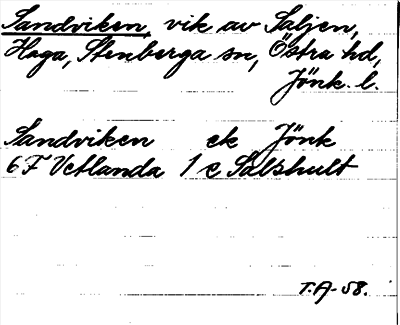 Sandviken, vik av Saljen,
Haga, Stenberga sn, Östra hd,
Jönk. l.
Sandviken ek Jönk
6F Vetlanda 1 e Salshult
T.A-58.